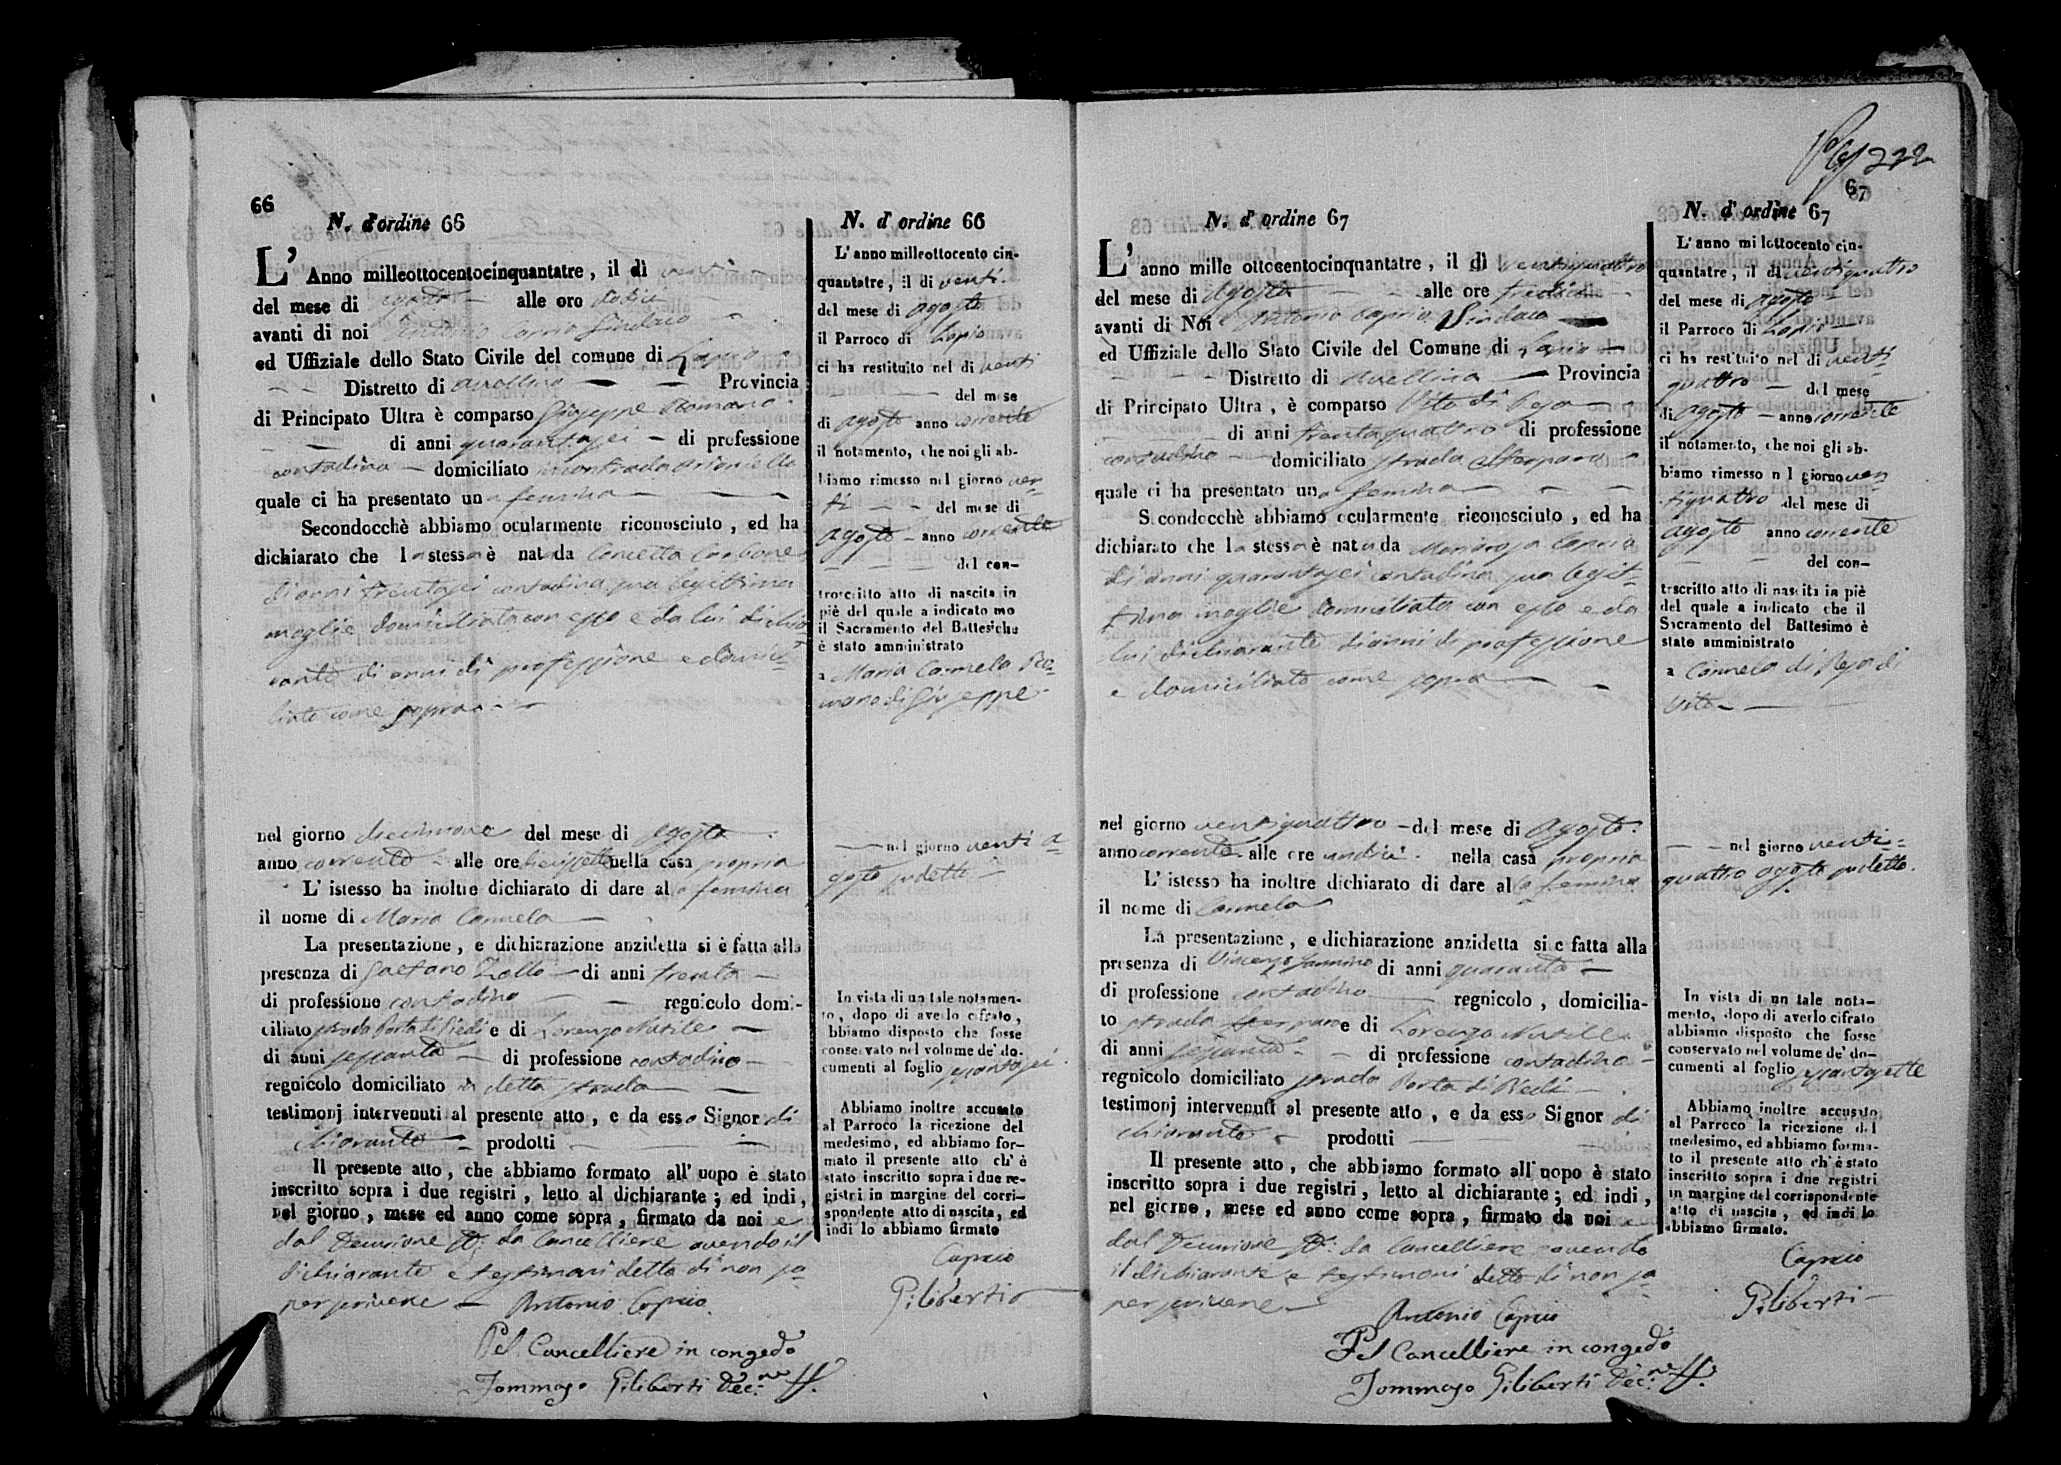 66
N. d'ordine 66
L' Anno milleottocentocinquantatre, il dì venti
del mese di agosto alle ore dodici
avanti di noi Antonio Caprio Sindaco
ed Uffiziale dello Stato Civile del comune di Lapio
Distretto di Avellino Provincia
di Principato Ultra è comparso Giuseppe Romano
di anni quarantasei di professione
contadino domiciliato
quale ci ha presentato una femina
Secondocchè abbiamo ocularmente riconosciuto, ed ha
dichiarato che la stessa è nata da Concetta Carbone
di anni trentasei contadina sua legittima
moglie domiciliata con esso e da lui dichia=
rante di anni di professione e domici=
liato come sopra
nel giorno diecinnove del mese di agosto
anno corrente alle ore diecissette nella casa propria
L' istesso ha inoltre dichiarato di dare alla femina
il nome di Maria Carmela
La presentazione, e dichiarazione anzidetta si è fatta alla
presenza di Gaetano Zollo di anni trenta
di professione contadino regnicolo domi-
ciliato strada Porta di Piedi e di Lorenzo Natile
di anni sessanta di professione contadino
regnicolo domiciliato in detta strada
testimonj intervenuti al presente atto, e da esso Signor di
chiarante prodotti
Il presente atto, che abbiamo formato all' uopo è stato
inscritto sopra i due registri, letto al dichiarante; ed indi,
nel giorno, mese ed anno come sopra, firmato da noi e
dal Decurione ff. da Cancelliere avendo il
dichiarante e testimoni detto di non sa=
per scrivere Antonio Caprio
Pel Cancelliere in congedo
Tommaso Piliberti Dec.ne ff.
N. d' ordine 66
L' anno milleottocento cin-
quantatre, il di venti
del mese di agosto
il Parroco di Lapio
ci ha restituito nel di venti
del mese
di agosto anno corrente
il notamento, che noi gli ab-
biamo rimesso nel giorno ven
ti del mese di
agosto anno corrente
del con-
troscritto atto di nascita in
piè del quale a indicato mo
il Sacramento del Battesi che
è stato amministrato
a Maria Carmela Ro=
mano di Giuseppe
nel giorno venti a=
gosto sudetto
In vista di un tale notamen-
to, dopo di averlo cifrato,
abbiamo disposto che fosse
conservato nel volume de' do-
cumenti al foglio sessantasei
Abbiamo inoltre accusato
al Parroco la ricezione del
medesimo, ed abbiamo for-
mato il presente atto ch' è
stato inscritto sopra i due re-
gistri in margine del corri-
spondente atto di nascita, ed
indi lo abbiamo firmato
Caprio
Piliberti
222
67
N. d' ordine 67
L' anno mille ottocentocinquantatre, il dì ventiquattro
del mese di Agosto alle ore tredici
avanti di Noi Antonio Caprio Sindaco
ed Uffiziale dello Stato Civile del Comune di Lapio
Distretto di Avellino Provincia
di Principato Ultra, è comparso Vito di Peja
di anni trentaquattro di professione
contadino domiciliato strada
quale ci ha presentato una femina
Secondocchè abbiamo ocularmente riconosciuto, ed ha
dichiarato che la stessa è nata da Mariarosa Caprio
di anni quarantasei contadina sua legit=
tima moglie domiciliata con esso e da
lui dichiarante di anni di professione
e domiciliato come sopra
nel giorno ventiquattro del mese di Agosto
anno corrente alle ore undici nella casa propria
L' istesso ha inoltre dichiarato di dare alla femina
il nome di Carmela
La presentazione, e dichiarazione anzidetta si è fatta alla
presenza di Vincenzo Iannino di anni quaranta
di professione contadino regnicolo, domicilia-
to strada e di Lorenzo Natile
di anni sessanta di professione contadino
regnicolo domiciliato strada Porta di Piedi
testimonj intervenuti al presente atto, e da esso Signor di
chiarante prodotti
Il presente atto, che abbiamo formato all' uopo è stato
inscritto sopra i due registri, letto al dichiarante; ed indi,
nel giorno, mese ed anno come sopra, firmato da noi e
dal Decurione ff. da Cancelliere avendo
il dichiarante e testimoni detto di non sa
per scrivere
Antonio Caprio
Pel Cancelliere in congedo
Tommaso Piliberti Dec.ne ff.
N. d' ordine 67
L' anno millottocento cin-
quantatre, il di ventiquattro
del mese di agosto
il Parroco di Lapio
ci ha restituito nel di venti
quattro del mese
di agosto anno corrente
il notamento, che noi gli ab-
biamo rimesso nel giorno ven
tiquattro del mese di
agosto anno corrente
del con-
troscritto atto di nascita in piè
del quale a indicato che il
Sacramento del Battesimo è
stato amministrato
a Carmela di Peja di
Vito
nel giorno venti=
quattro agosto sudetto.
In vista di un tale nota-
mento, dopo di averlo cifrato
abbiamo disposto che fosse
conservato nel volume de' do-
cumenti al foglio sessantasette
Abbiamo inoltre accusato
al Parroco la ricezione del
medesimo, ed abbiamo forma-
to il presente atto ch' è stato
inscritto sopra i due registri
in margine del corrispondente
atto di nascita, ed indi lo
abbiamo firmato.
Caprio
Piliberti